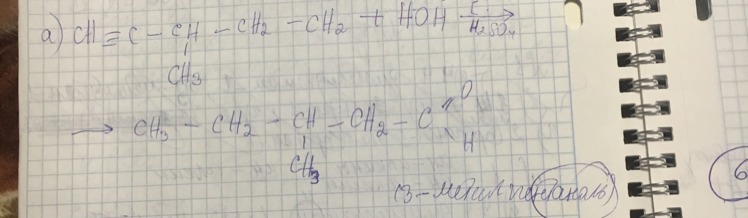 а) CH ≡ C – CH – CH₂ – CH₂ + HOH →
H₂SO₄
CH₃
→ CH₃ – CH₂ – CH – CH₂ – C
O
H
CH₃
(3 – метил пентаналь)
6